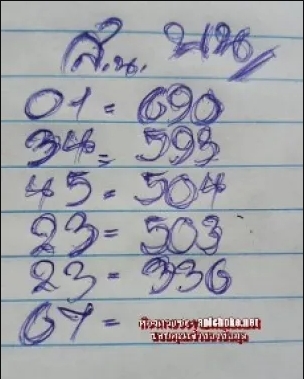 ส.น. บน
01 = 690
34 = 593
45 = 504
23 = 503
23 = 336
67 =
apichoke.net